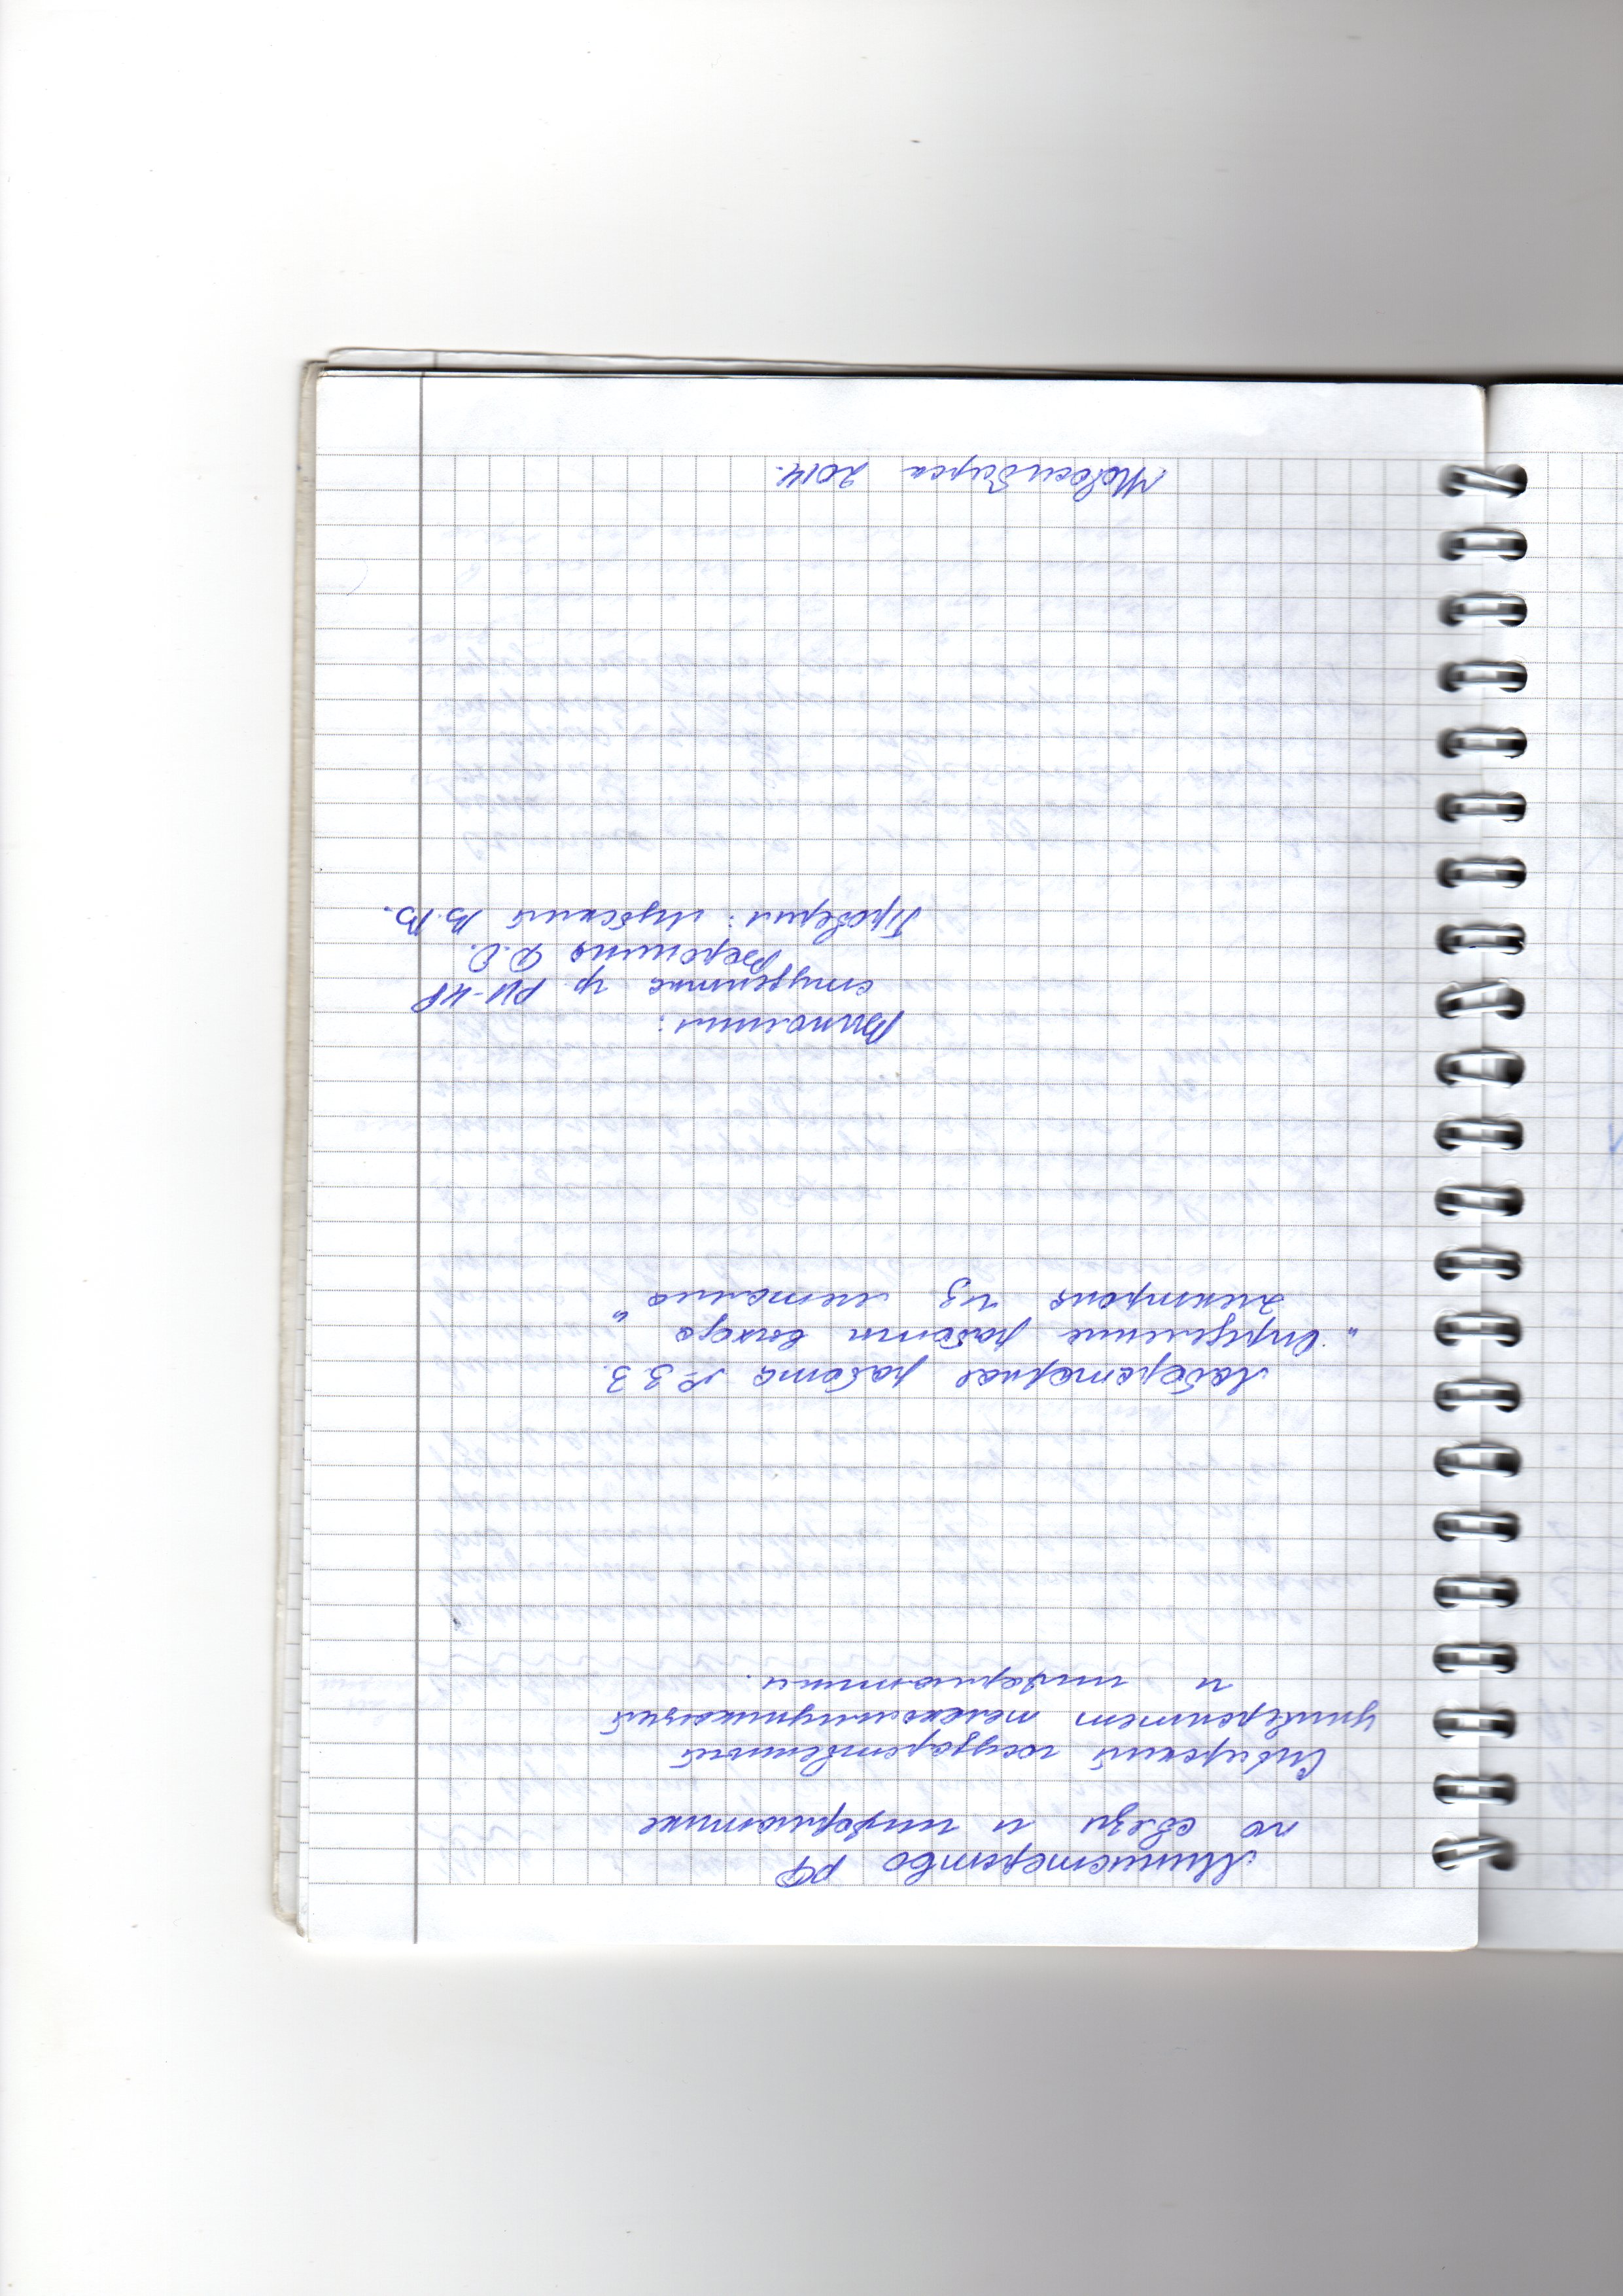 Министерство РФ
по связи и информатике
Сибирский государственный
университет телекоммуникаций
и информатики.
Лабораторная работа № 3.3.
„Определение работы выхода
электрона из металла“
Выполнил:
студентка гр.
Воронина Д.О.
Проверил: Лубский В.В.
Новосибирск 2014.